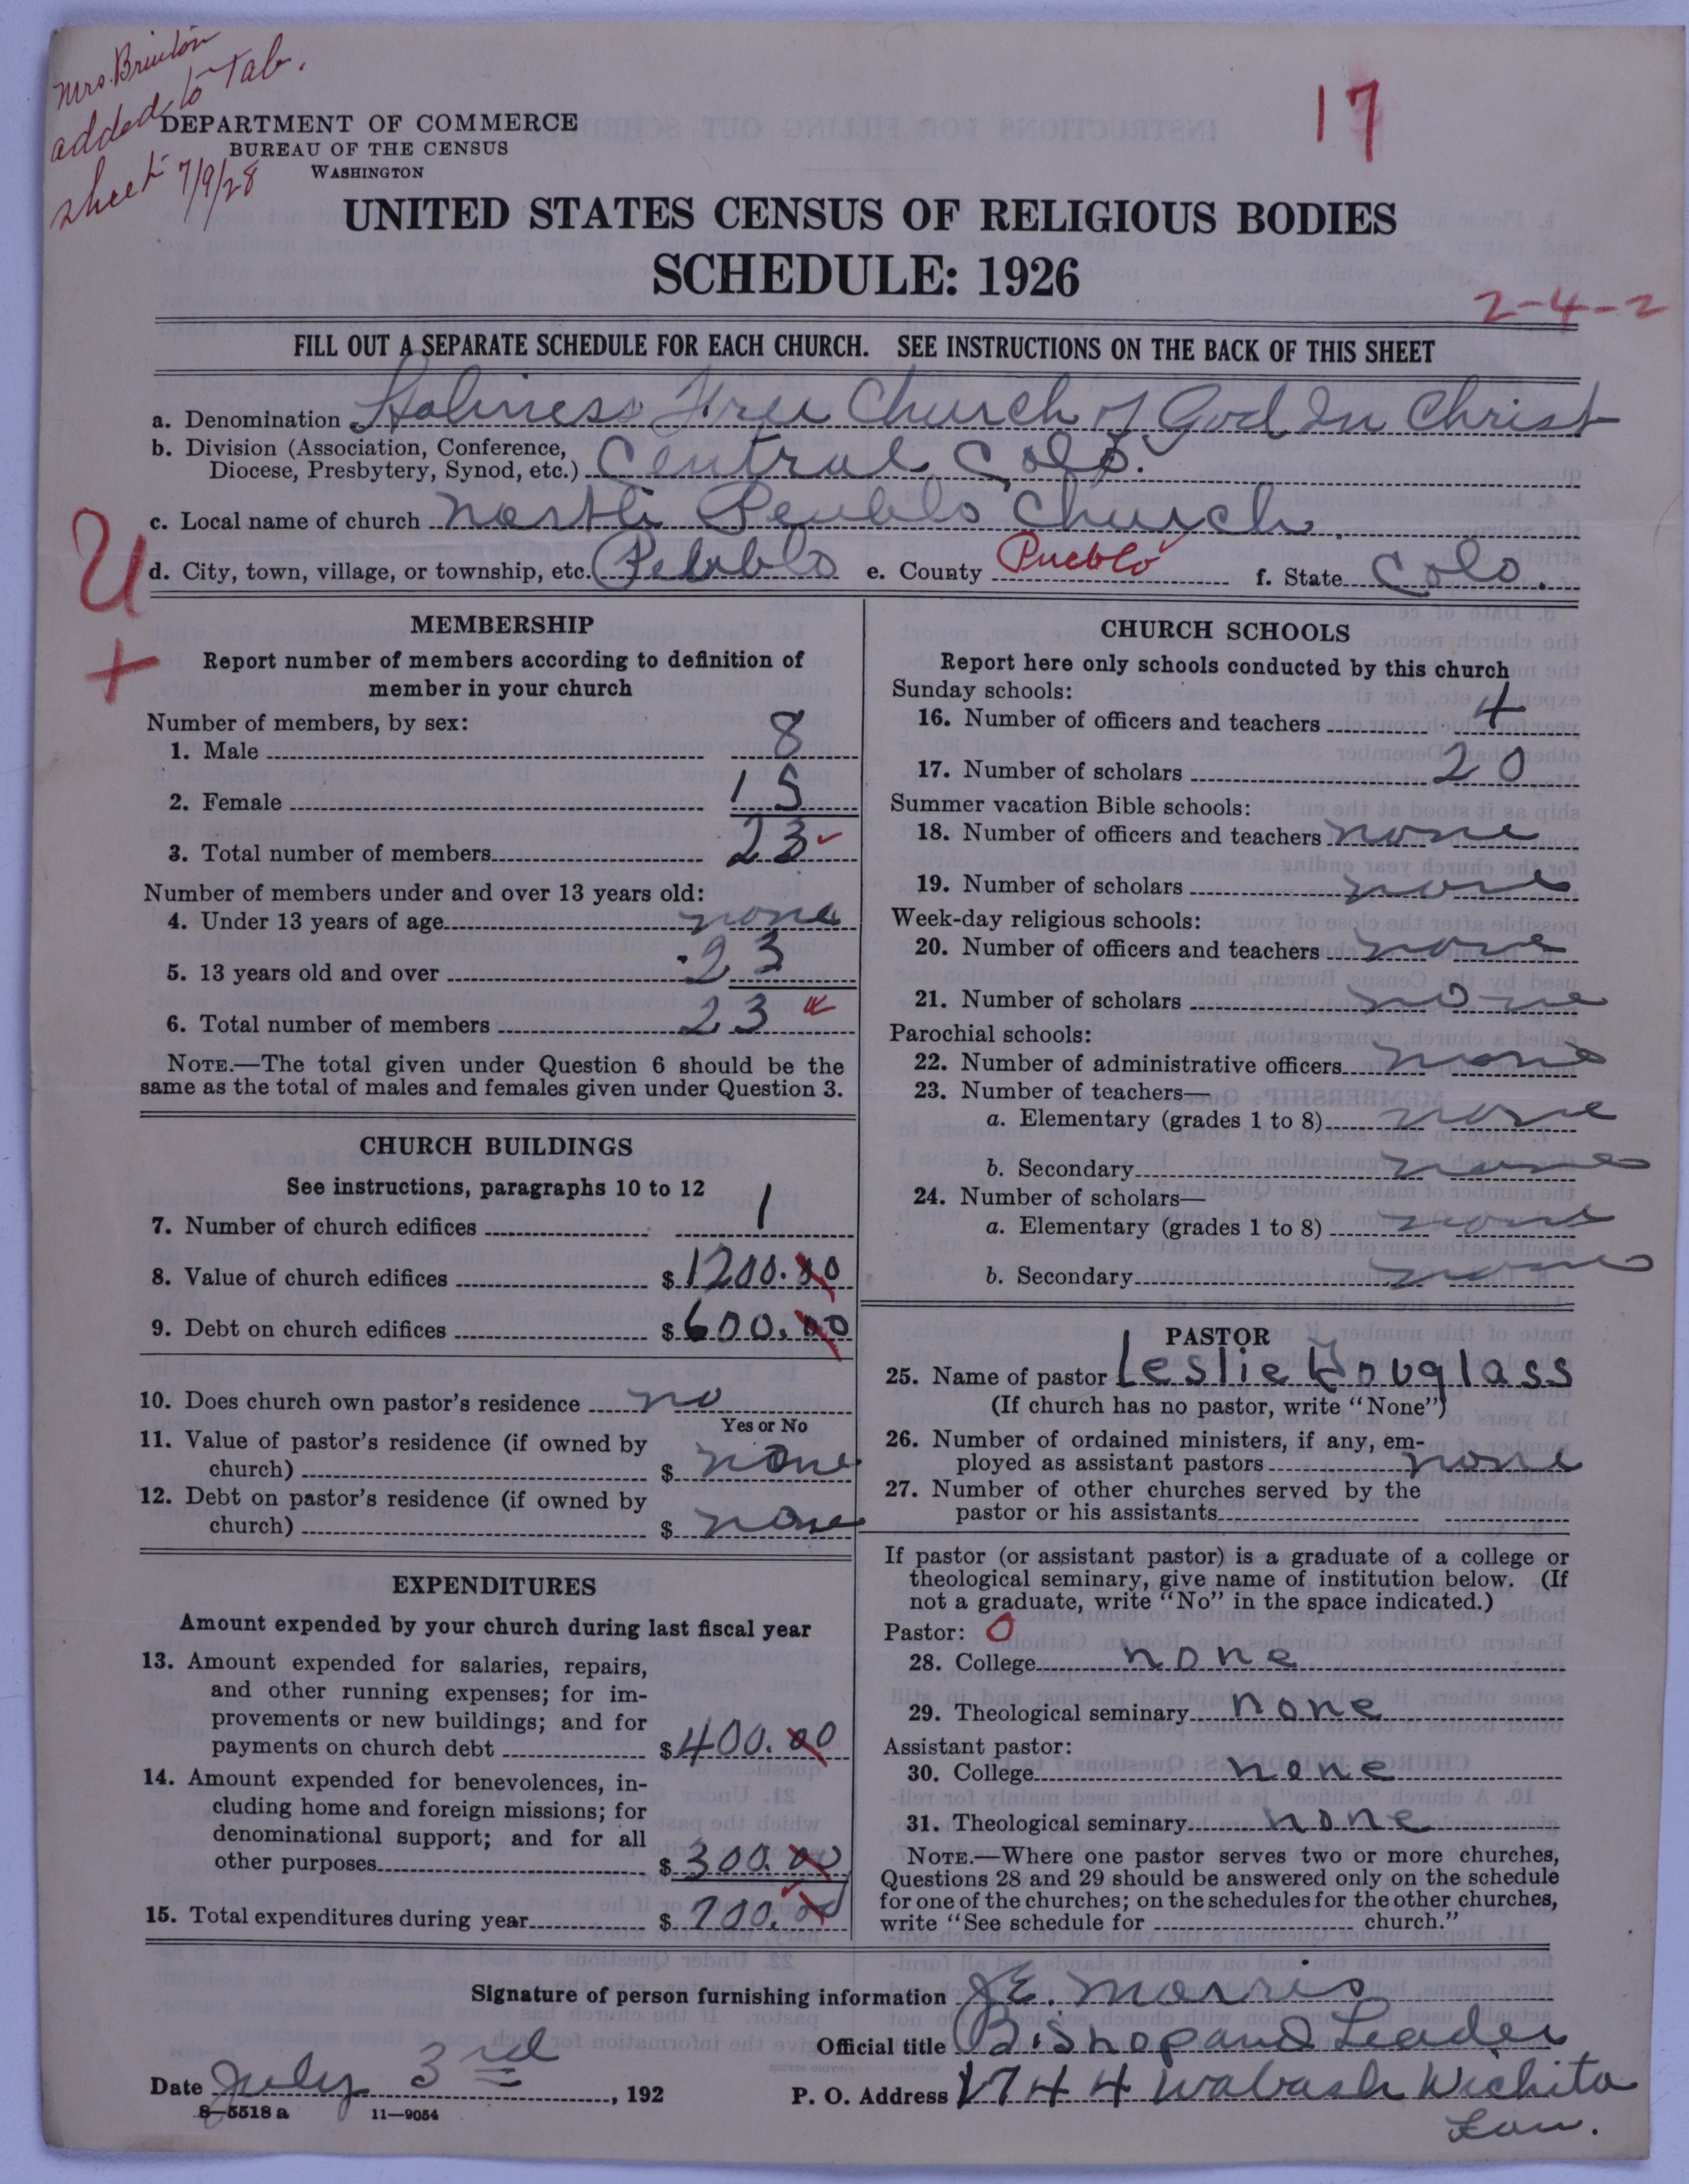 Mrs. Brinton
added to Tab.
sheet 7/9/28
17
DEPARTMENT OF COMMERCE
BUREAU OF THE CENSUS
WASHINGTON
UNITED STATES CENSUS OF RELIGIOUS BODIES
SCHEDULE: 1926
2-4-2
FILL OUT A SEPARATE SCHEDULE FOR EACH CHURCH. SEE INSTRUCTIONS ON THE BACK OF THIS SHEET
a. Denomination Holiness Free Church of God In Christ
b. Division (Association, Conference,
Diocese, Presbytery, Synod, etc.) Central Colo.
c. Local name of church North Peublo Church
d. City, town, village, or township, etc. Peublo e. County Pueblo f. State Colo.
U
+
MEMBERSHIP
Report number of members according to definition of
member in your church
Number of members, by sex:
1. Male 8
2. Female 15
3. Total number of members 23
Number of members under and over 13 years old:
4. Under 13 years of age none
5. 13 years old and over 23
6. Total number of members 23
NOTE.—The total given under Question 6 should be the
same as the total of males and females given under Question 3.
CHURCH BUILDINGS
See instructions, paragraphs 10 to 12
7. Number of church edifices 1
8. Value of church edifices $1200.00
9. Debt on church edifices $600.00
10. Does church own pastor's residence no
Yes or No
11. Value of pastor's residence (if owned by
church) $ none
12. Debt on pastor's residence (if owned by
church) $ none
EXPENDITURES
Amount expended by your church during last fiscal year
13. Amount expended for salaries, repairs,
and other running expenses; for im-
provements or new buildings; and for
payments on church debt $400.00
14. Amount expended for benevolences, in-
cluding home and foreign missions; for
denominational support; and for all
other purposes $300.00
15. Total expenditures during year $700.00
CHURCH SCHOOLS
Report here only schools conducted by this church
Sunday schools:
16. Number of officers and teachers 4
17. Number of scholars 20
Summer vacation Bible schools:
18. Number of officers and teachers none
19. Number of scholars none
Week-day religious schools:
20. Number of officers and teachers none
21. Number of scholars none
Parochial schools:
22. Number of administrative officers none
23. Number of teachers—
a. Elementary (grades 1 to 8) none
b. Secondary none
24. Number of scholars—
a. Elementary (grades 1 to 8) none
b. Secondary none
PASTOR
25. Name of pastor Leslie Douglass
(If church has no pastor, write "None")
26. Number of ordained ministers, if any, em-
ployed as assistant pastors none
27. Number of other churches served by the
pastor or his assistants
If pastor (or assistant pastor) is a graduate of a college or
theological seminary, give name of institution below. (If
not a graduate, write "No" in the space indicated.)
Pastor: 0
28. College none
29. Theological seminary none
Assistant pastor:
30. College none
31. Theological seminary none
NOTE.—Where one pastor serves two or more churches,
Questions 28 and 29 should be answered only on the schedule
for one of the churches; on the schedules for the other churches,
write "See schedule for church."
Signature of person furnishing information J.E. Morris
Official title Bishop and Leader
Date July 3rd, 192 P. O. Address 1744 Wabash Wichita
Kan.
8-5518a 11-9054